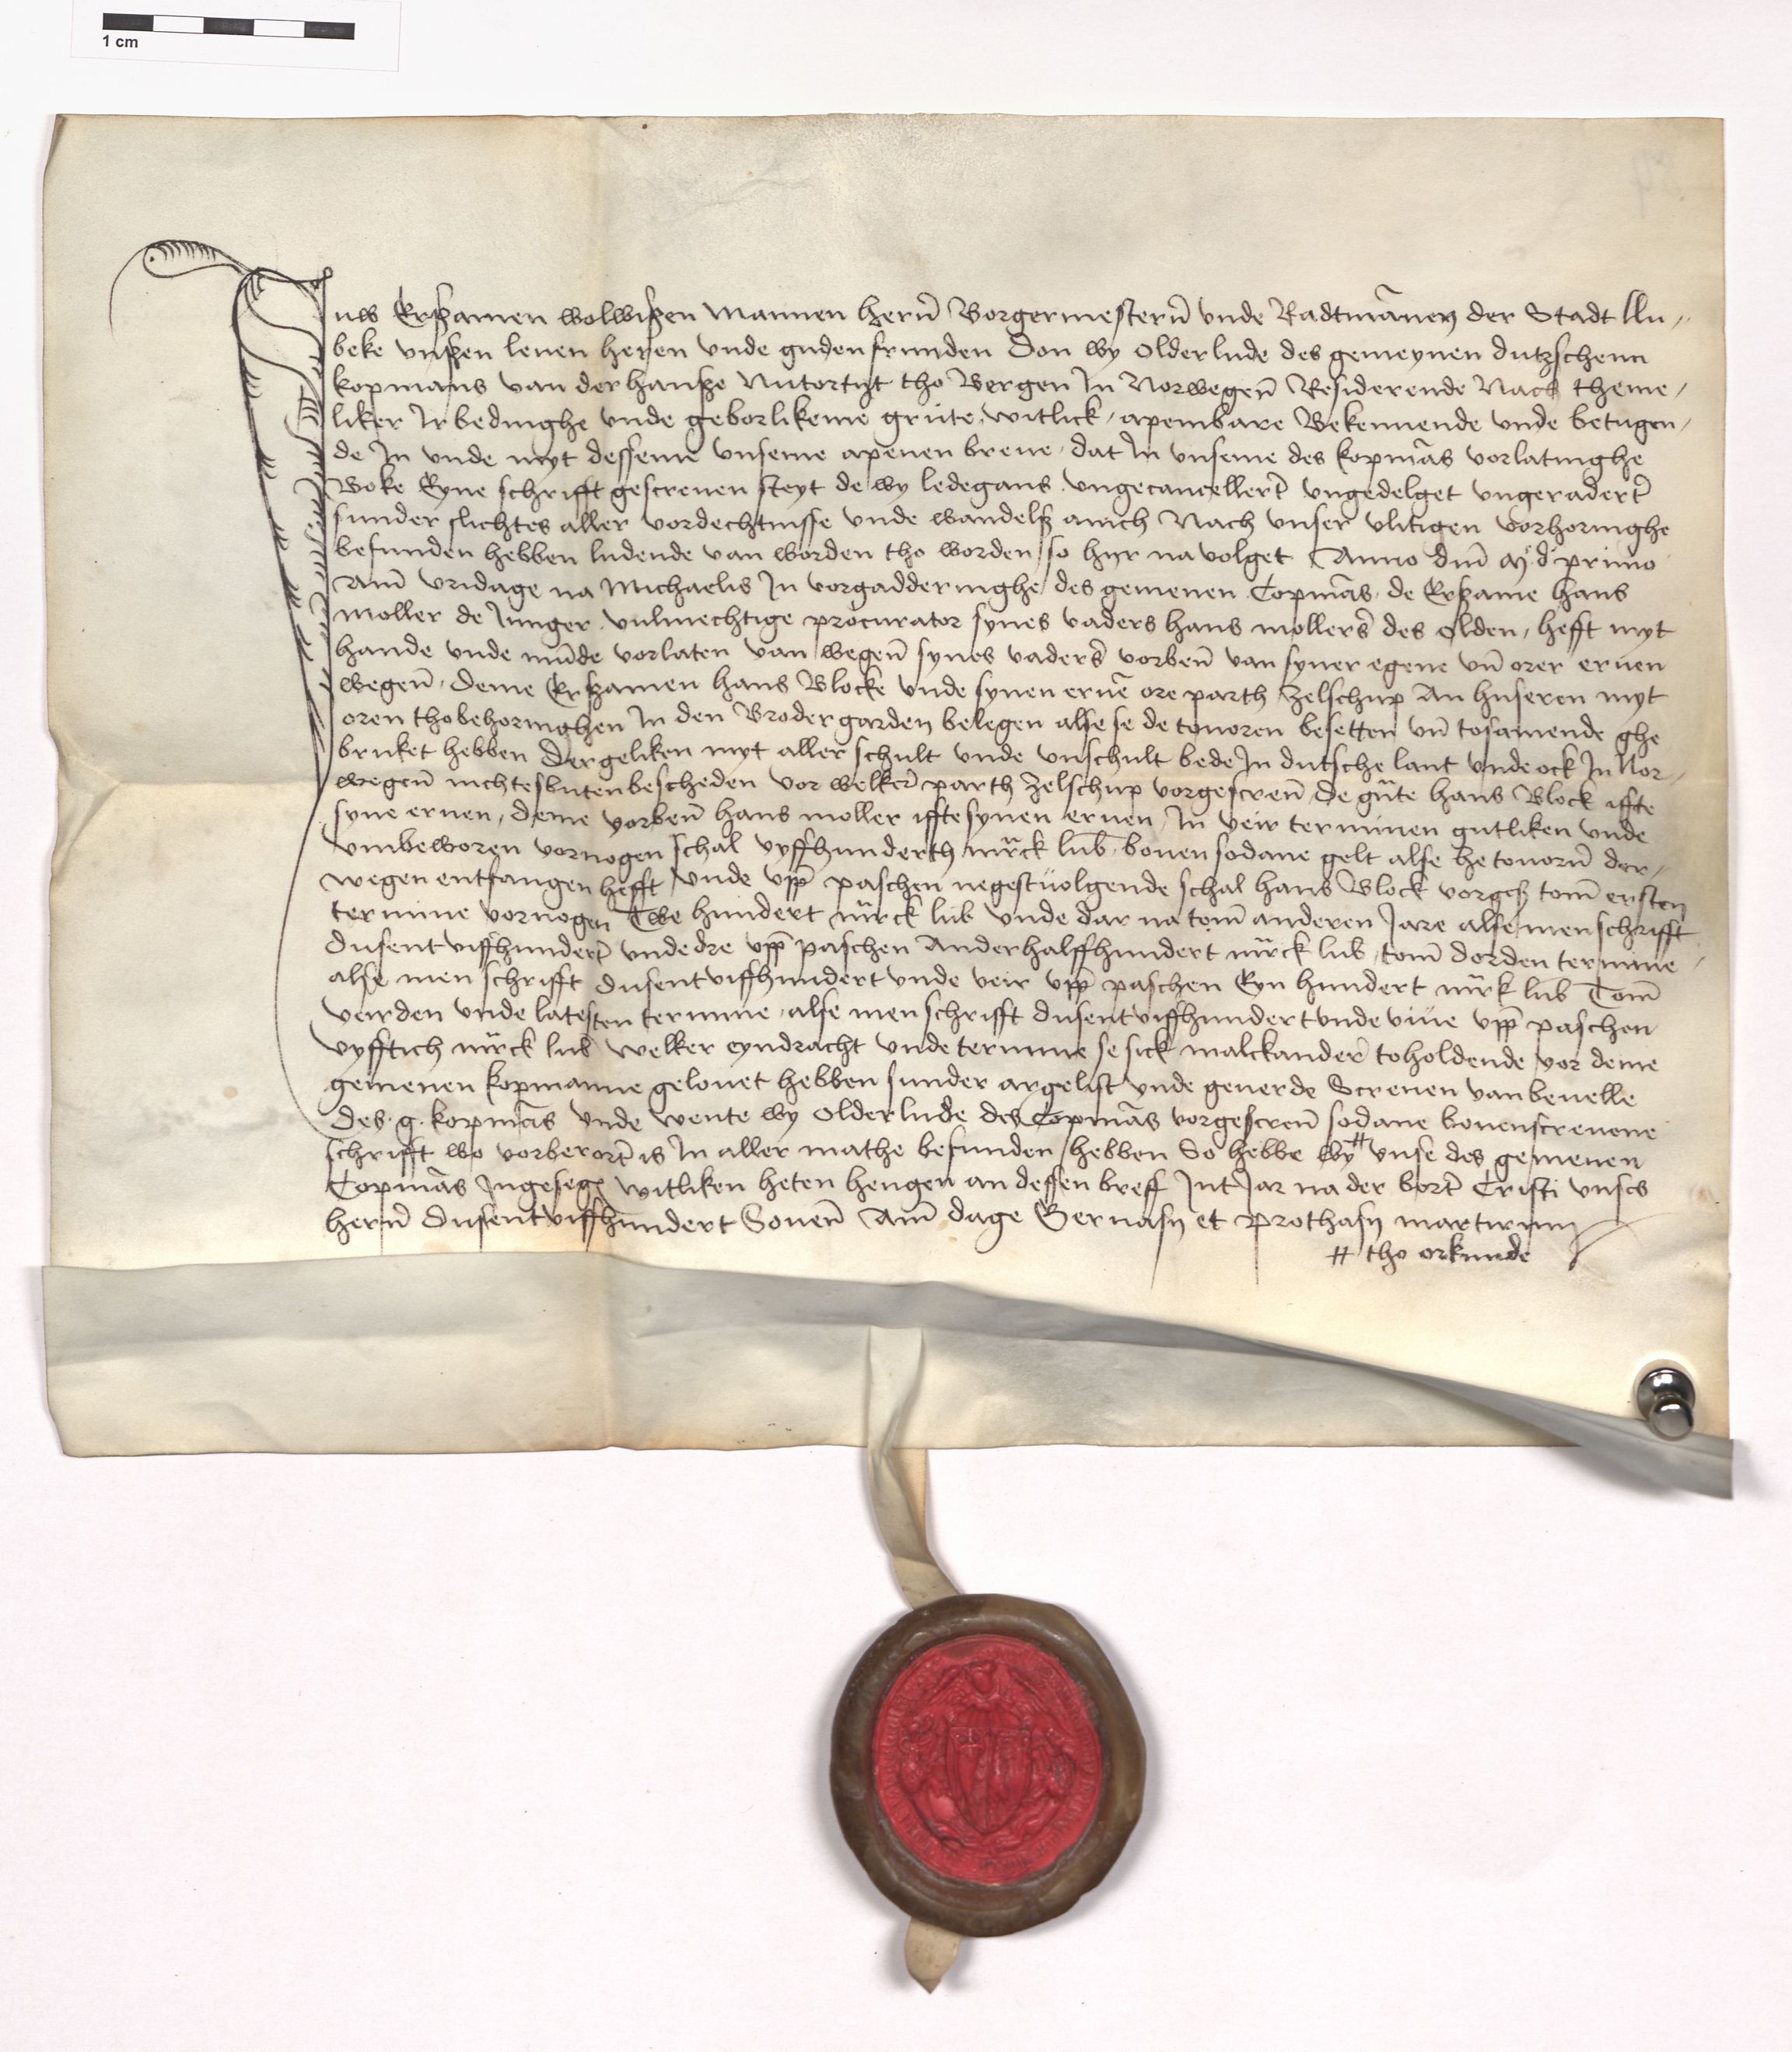 1 cm
Juw Erßamen wolwißen Mannen hern̄ Borgermestern̄ vnde Radtmāney der Stadt Llu⸗
beke vnßen leuen heren vnde guden frunden Don wy Olderlude des gemeynen dutzschenn
kopmans van der hanße Nutortyt tho Bergen In Norwegen̄ Residerende Nach theme⸗
liker Irbedinghe vnde geborlikeme grute, witlick, apembare Bekennende vnde betugen⸗
de In vnde myt desseme vnseme apenen breue, dat In vnseme des kopmās vorlatinghe
Boke Eyne schrifft gescreuen steyt de wy ledegans vngecancellert̄ vngedelget vngeradert̄
sunder slichtes aller vordechtnisse vnde wandelß anich Nach vnser vlitigen vorhoringhe
befunden hebben ludende van worden tho worden so hyr na volget Anno dm̄ M° d° primo
Am̄ vridage na Michaelis In vorgadderinghe des gemenen Copmās de Erßame hans
moller de Junger vulmechtige procurator synes vaders hans mollers̄ des Olden, hefft myt
hande vnde mūde vorlaten van wegen̄ synes vaders̄ vorben̄ van syner egene vn̄ orer eruen
wegen̄, deme Erßamen hans Blocke vnde synen eruē ore parth zelschup An huseren myt
oren thobehoringhen In den Brodergarden belegen alse se de touoren besetten vn̄ tosamende ghe
bruket hebben Dergeliken myt aller schult vnde vnschult bede In dutsche lant vnde ock In Nor⸗
wegen̄ nichtes buten bescheden vor welker̄ parth zelschup vorgescreu̅ de gute hans Block iffte
syne eruen, deme vorben̄ hans moller iffte synen eruen, In veir terminen gutliken vnde
vmbeworen vornogen schal vyffhunderth mrck lub̄. bouen sodane gelt alse he touorn̄ der⸗
wegen entfangen hefft vnde vpp̄ paschen negestuolgende schal hans Block vorgeß tom̄ ersten
termine vornogen Twe hundert mrck lub vnde dar na tom̄ anderen Jare alse men schrifft
dusent viffhundert̄ vnde dre vpp̄ paschen Anderhalffhundert mrck lub, tom̄ dorden termine
alse men schrifft dusent viffhundert vnde veir vpp̄ paschen Eyn hundert mrk lub̄ Tom̄
veirden vnde latesten termine, alse men schrifft dusent viffhundert vnde viue vpp paschen
vyfftich mrck lub welker eyndracht vnde termine se sick malckander̄ toholdende vor deme
gemenen kopmanne gelouet hebben sunder argelist vnde geuerde Screuen van beuelle
des g. kopmās vnde wente wy Olderlude des Copmās vorgescreū sodane bouenscreuene
schrifft wo vorberort̄ is In aller mathe befunden hebben So hebbe wy # vnse des gemenen
Copmās Ingesegē witliken heten hengen an dessen breff Int Jar na der bort̄ Cristi vnses
hern̄ dusent viffhundert Souen̄ Am̄ dage Geruasij et Prothasij martirum
# tho orkunde